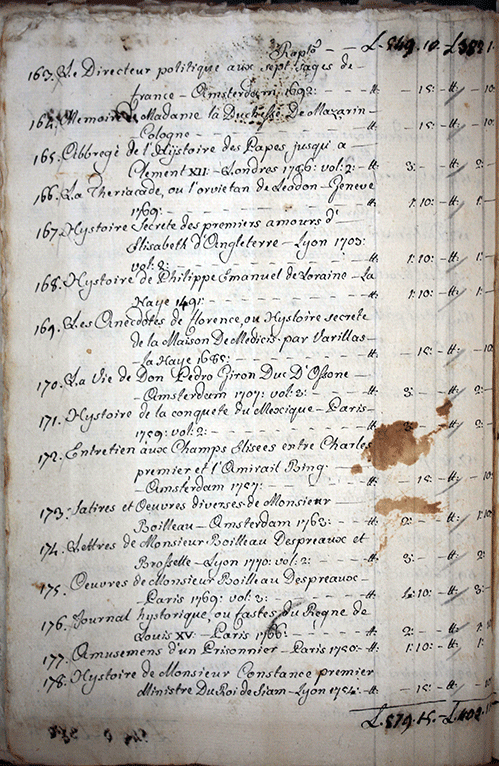 Rapto - - L. 549. 10. - L. 382. 1
163. Le Directeur politique aux sept sages de
france - Amsterdam, 1692: - - tt: - 15: - tt: - 10.
164. Memoire De Madame la Duchesse De Mazarin -
Cologne - - - tt: - 15: - tt: - 10.
165. Abbregè de l'Hystoire des Papes jusqu'a -
Clement XII: - Londres 1756: vol: 2: - tt: 3: - tt: 2:
166. La Theriacade, ou l'orvietan de Leodon - Geneve
1769: - - - tt: 1: 10: - tt: 1:
167. Hystoire Secrete des premiers amours d'
Elisabeth d'Angleterre - Lyon 1703:
vol: 2: - - - tt: 1: 10: - tt: 1:
168. Hystoire de Philippe Emanuel de Loraine - La
Haye 1691: - - - tt: 1: 10: - tt: 1:
169. Les Anecdotes de florence, ou Hystoire secrete
de la Maison De Medicis - par Varillas -
- la Haye 1685: - - - tt: - 15: - tt: - 10
170. La Vie de Don Pedro Giron Duc D'Ossone -
- Amsterdam 1707: vol: 3: - tt: 3: - tt: 2:
171. Hystoire de la conquete du Mexique - Paris -
1759: vol: 2: - - - tt: 2:
172. Entretien aux Champs Elisees entre Charles
premier et l'Amirail Bing -
- Amsterdam 1757: - - - tt: - 15: - tt: - 10:
173. Satires et Oeuvres diverses de Monsieur -
Boilleau - Amsterdam 1763: - - tt: 2: - tt: 1: 10:
174. Lettres de Monsieur Boilleau Despreaux et
Brossette - Lyon 1770: vol: 2: - - tt: 3: - tt: 2:
175. Oeuvres de Monsieur Boileau Despreaux -
- Paris 1769: vol: 3: - - tt: 4: 10: - tt: 3:
176. Journal hystorique, ou fastes du Regne de
Louis XV: - Paris 1766: - - tt: 2: - tt: 1:
177. Amusemens d'un Prisonnier - Paris 1750: - tt: 1: 10: - tt: 1:
178. Hystoire de Monsieur Constance premier
Ministre Du Roi de Siam - Lyon 1754: - tt: - 15: - tt: - 10
L. 579. 15. - L. 402.